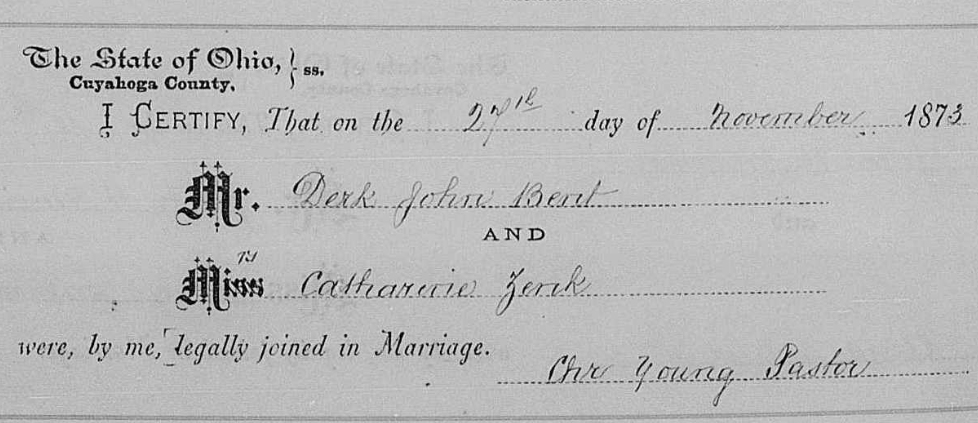 The State of Ohio, } ss.
Cuyahoga County.
I CERTIFY, That on the 27th day of November 1873
Mr. Derk John Bent
AND
rs
Miss Catharine Zenk
were, by me, legally joined in Marriage.
Chr Young Pastor